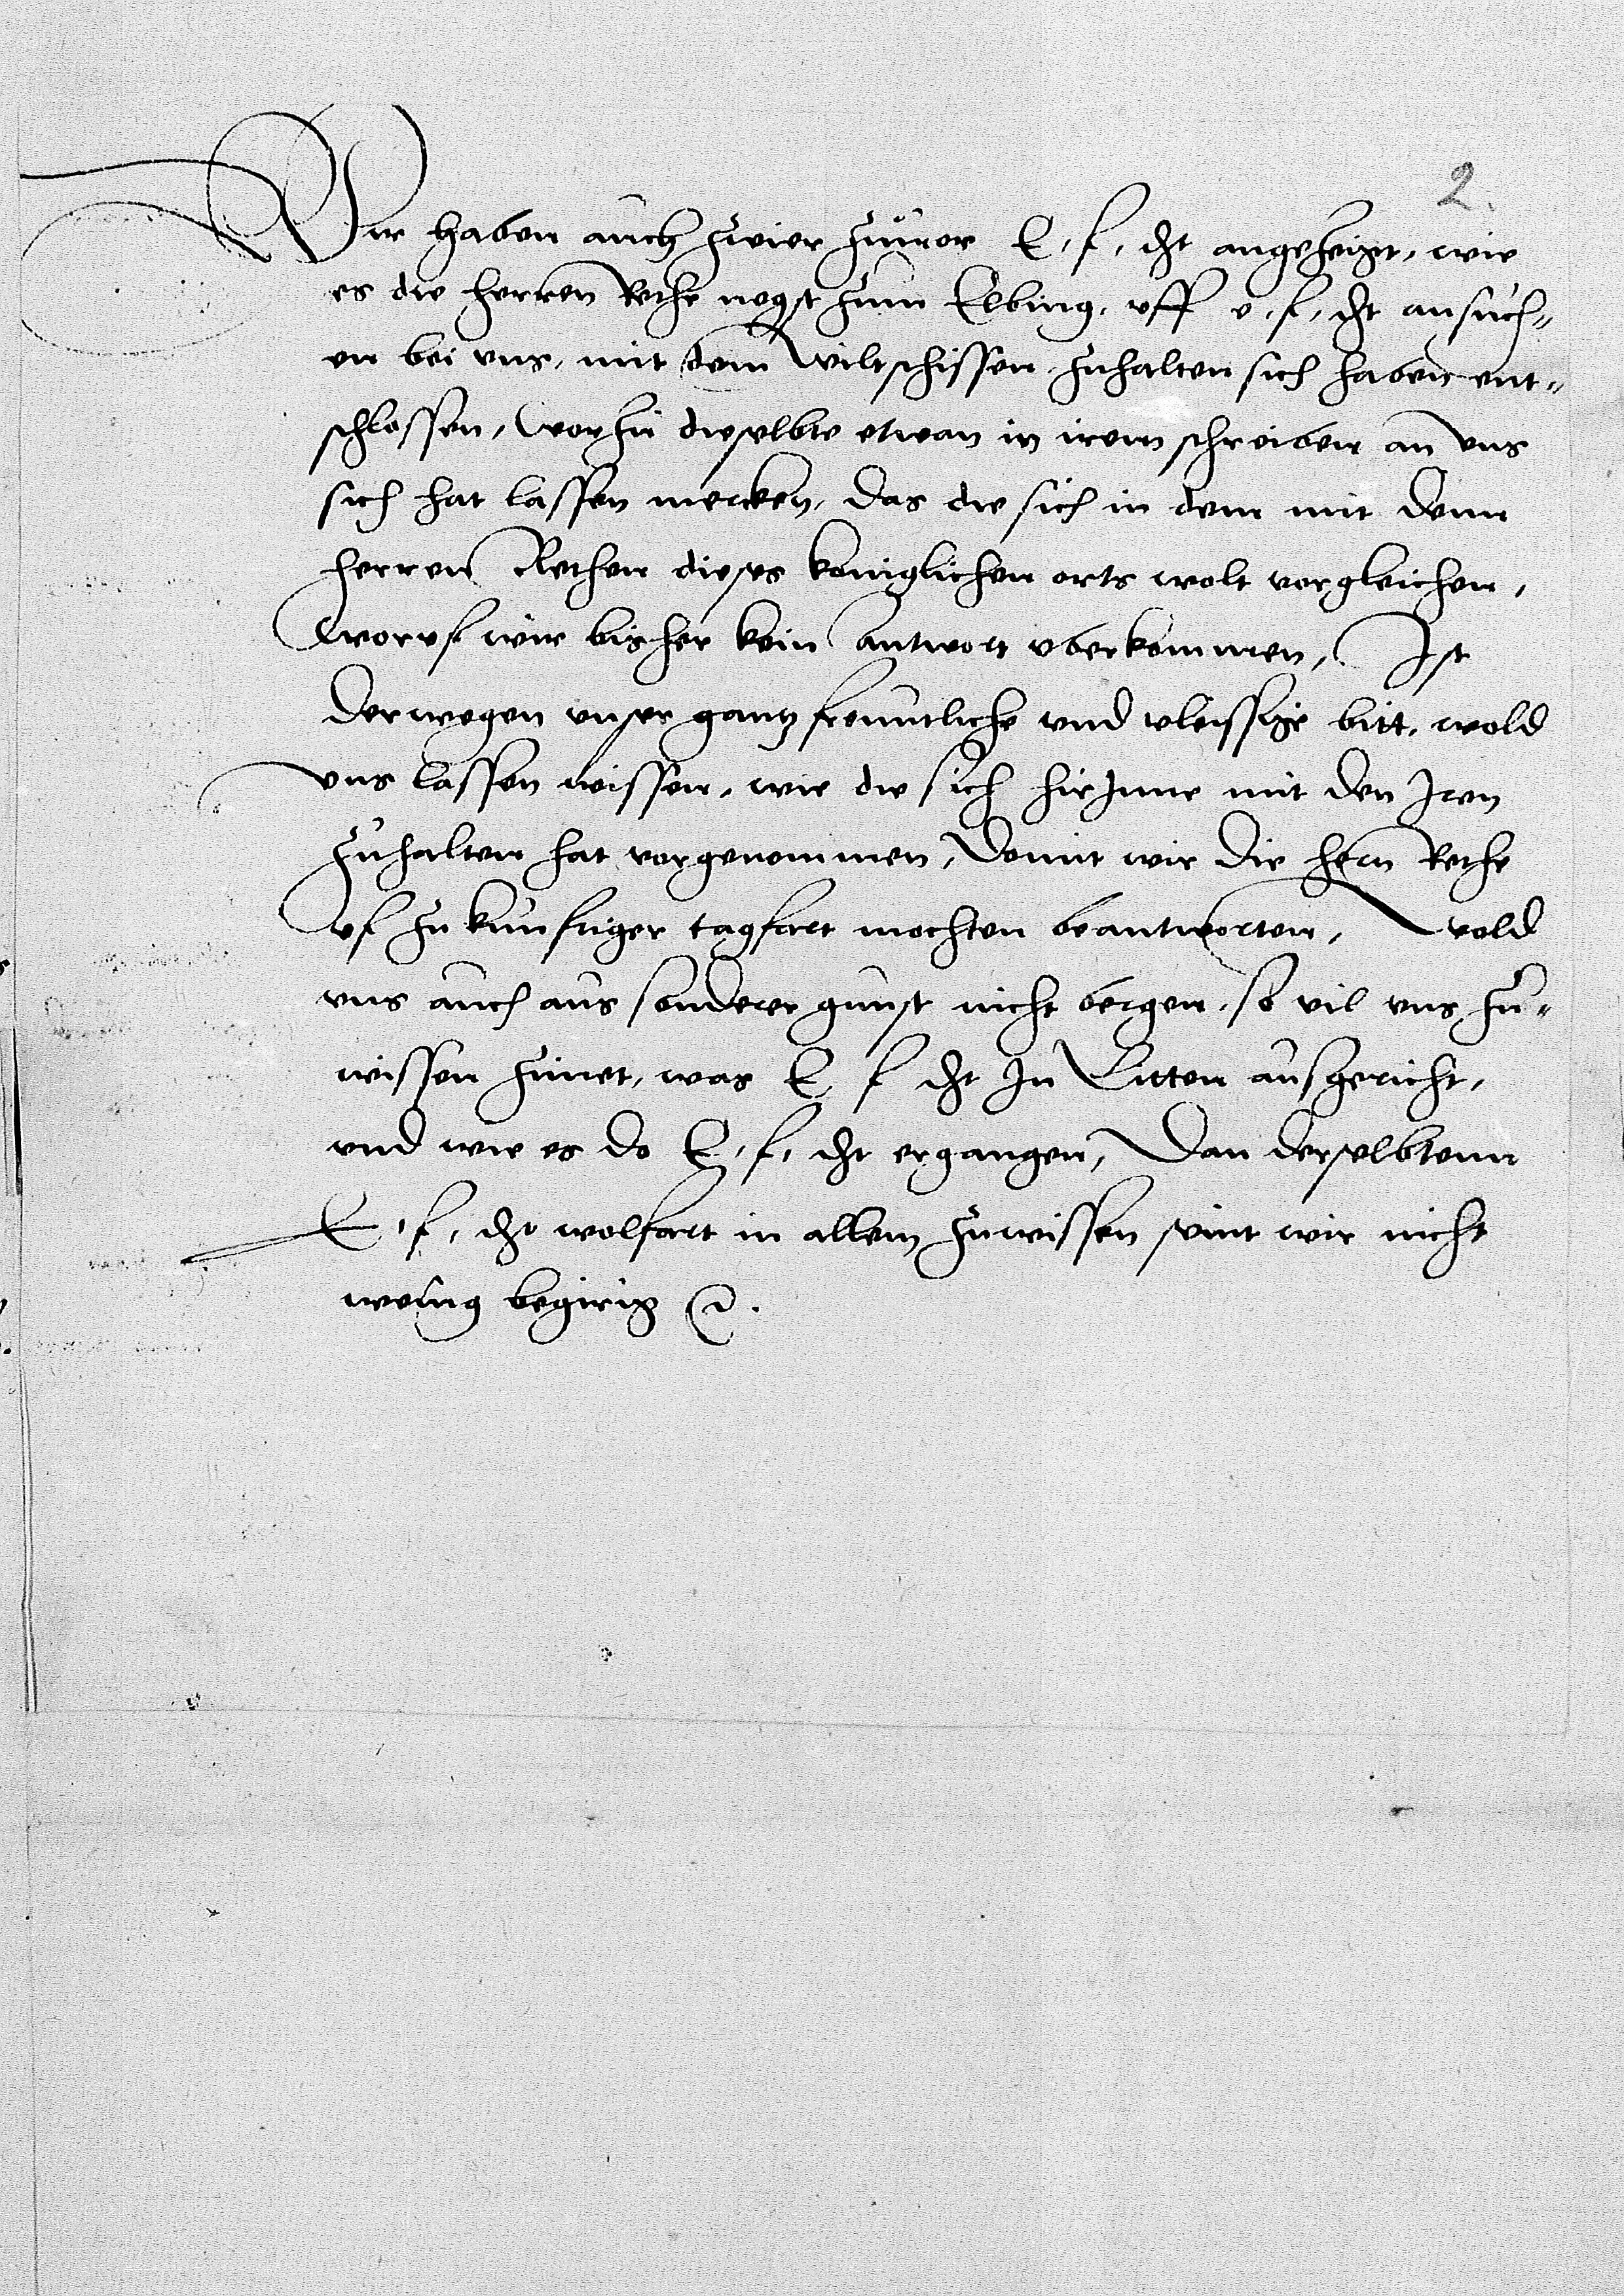 2.
Wir haben auch zwier zuuor E, f, dht angezeigt, wie
es die herren Rethe negst zum Elbing, vff e, f, dht ansuch„
en bei vns, mit dem wiltschissen zuhalten sich haben ent„
schlossen, worzu dieselbte etwan in irem schreiben an vns
sich hat lassen mercken, das die sich in dem mit denn
herren Rethen dieses koniglichen orts wolt vorgleichen,
Woruf wir bisher kein antwort vberkommen, Ist
derwegen vnser gantz freuntliche vnd vleissige bitt, wold
vns lassen wissen, wie die sich hirInne mit den Iren
zuhalten hat vorgenommen, Domit wir die hern Rethe
vf zukunftiger tagfart mochten beantworten, Wold
vns auch aus sonderer gunst nicht bergen, so vil vns zu„
wissen zimet, was E, f dht In Litten ausgericht,
vnd wie es do E, f, dht ergangen, Dan derselbtenn
E, f, dht wolfart in allem zuwissen seint wir nicht
wenig begirig